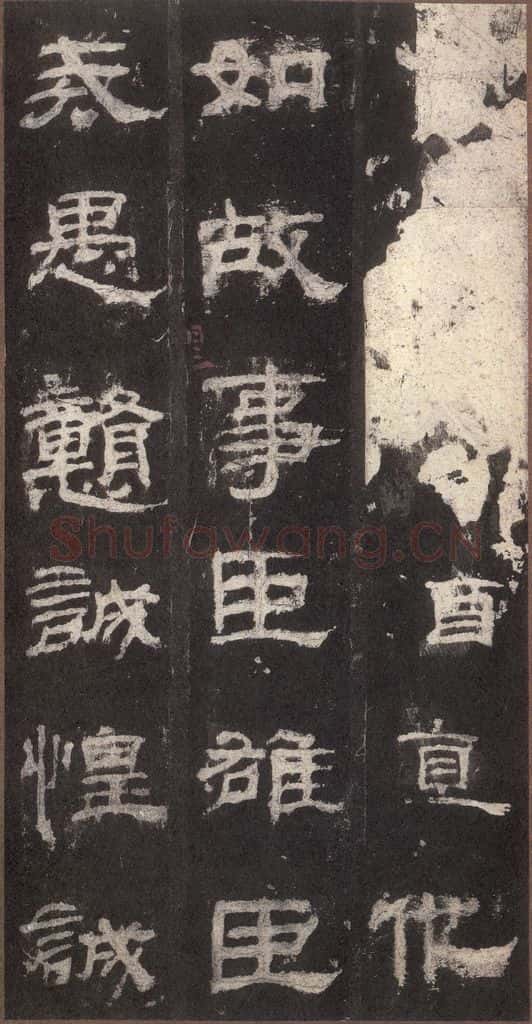 酒直他
如故事臣雄臣
戒愚戇誠惶誠
Shufawang.CN